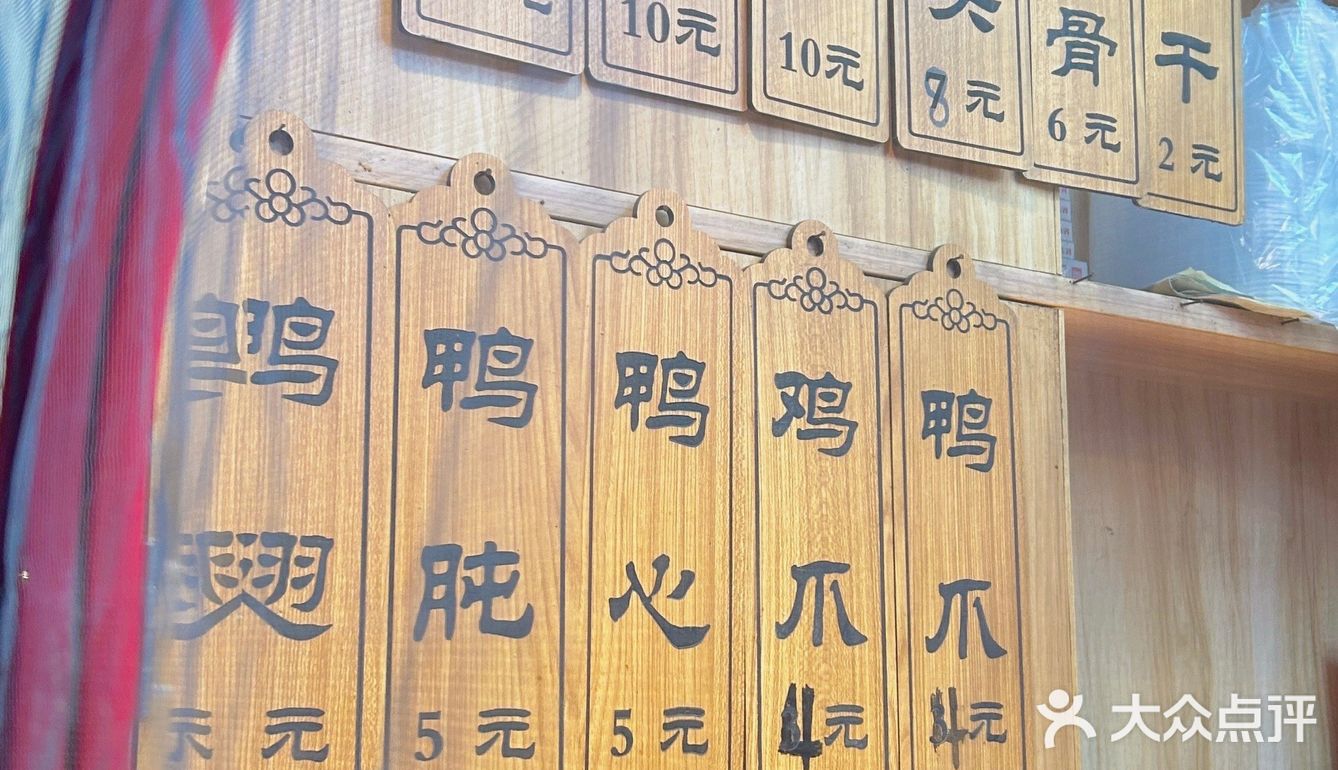 10元
10元
8元
骨
6元
干
2元
鸭
翅
元
鸭
肫
5元
鸭
心
5元
鸡
爪
4元
鸭
爪
4元
大众点评